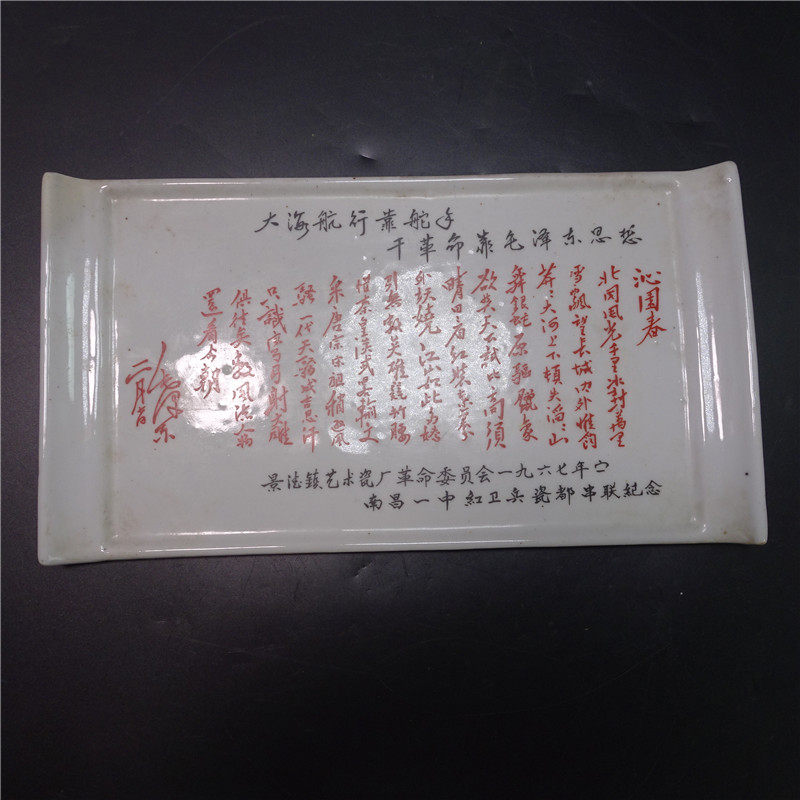 大海航行靠舵手
干革命靠毛泽东思想
沁园春
北国风光千里冰封万里
雪飘望长城内外惟余
莽〻大河上下顿失滔〻山
舞银蛇原驱臘象
欲与天公试比高须
晴日看红装素裹
外妖娆江山如此多娇
引无数英雄竞折腰
惜秦皇汉武略输文
采唐宗宋祖稍逊风
骚一代天骄成吉思汗
只識弯弓射大雕
俱往矣数风流人物
還看今朝
毛泽东
景德镇艺术瓷厂革命委员会一九六七年
南昌一中紅卫兵瓷都串联紀念